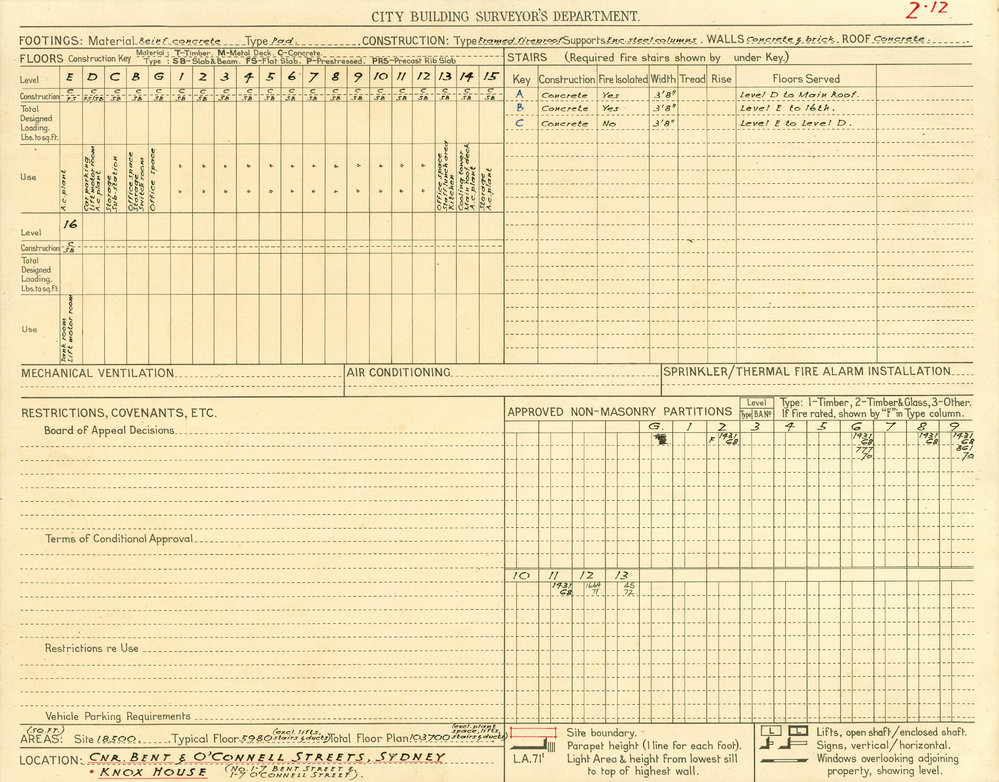 CITY BUILDING SURVEYOR'S DEPARTMENT.
2·12
FOOTINGS: Material Reinf concrete Type Pad. CONSTRUCTION: Type Framed fireproof Supports Enc. steel columns. WALLS Concrete & brick. ROOF Concrete.
FLOORS Construction Key Material; T-Timber, M-Metal Deck, C-Concrete.
Type : SB-Slab & Beam. FS-Flat Slab. P-Prestressed. PRS-Precast Rib Slab
STAIRS (Required fire stairs shown by under Key.)
Level E D C B G 1 2 3 4 5 6 7 8 9 10 11 12 13 14 15
Construction C C C C C C C C C C C C C C C C C C C C
FS FS/SB SB SB SB SB SB SB SB SB SB SB SB SB SB SB SB SB SB SB
Total
Designed
Loading.
Lbs. to sq. ft.
Use
A.c. plant
Car parking
Lift motor room
A.c. plant
Storage
Sub-station
Office space
Storage
Switch room
Office space
" " " " " " " " " " " "
" " " " " " " " " " " "
Office space
Staff lunch area
Kitchen
Cooling tower
Main roof deck
A.c. plant
Storage
A.c. plant
Level 16
Construction C
SB
Total
Designed
Loading.
Lbs. to sq. ft.
Use
Tank room
Lift motor room
Key Construction Fire Isolated Width Tread Rise Floors Served
A Concrete Yes 3'8" Level D to Main Roof.
B Concrete Yes 3'8" Level E to 16th.
C Concrete No 3'8" Level E to Level D.
MECHANICAL VENTILATION AIR CONDITIONING SPRINKLER/THERMAL FIRE ALARM INSTALLATION
RESTRICTIONS, COVENANTS, ETC.
Board of Appeal Decisions
Terms of Conditional Approval
Restrictions re Use
Vehicle Parking Requirements
APPROVED NON-MASONRY PARTITIONS Level
Type B.A.Nº
Type: 1-Timber, 2-Timber & Glass, 3-Other.
If Fire rated, shown by "F" in Type column.
G. 1 2 3 4 5 6 7 8 9
F 1431 1431 1431 1431
68 68 68 68
777 861
70 70
10 11 12 13
1431 1669 45
68 71 72
AREAS: (SQ.FT.) Site 18,500. Typical Floor 5980 (excl. lifts, stairs & ducts) Total Floor Plan 103700 (excl. plant space, lifts, stairs & ducts)
LOCATION: CNR. BENT & O'CONNELL STREETS, SYDNEY
• KNOX HOUSE (No. 1-7 BENT STREET &
1-7 O'CONNELL STREET).
Site boundary.
Parapet height (1 line for each foot).
L.A.71' Light Area & height from lowest sill
to top of highest wall.
L Lifts, open shaft/enclosed shaft.
Signs, vertical/horizontal.
Windows overlooking adjoining
property, showing level.